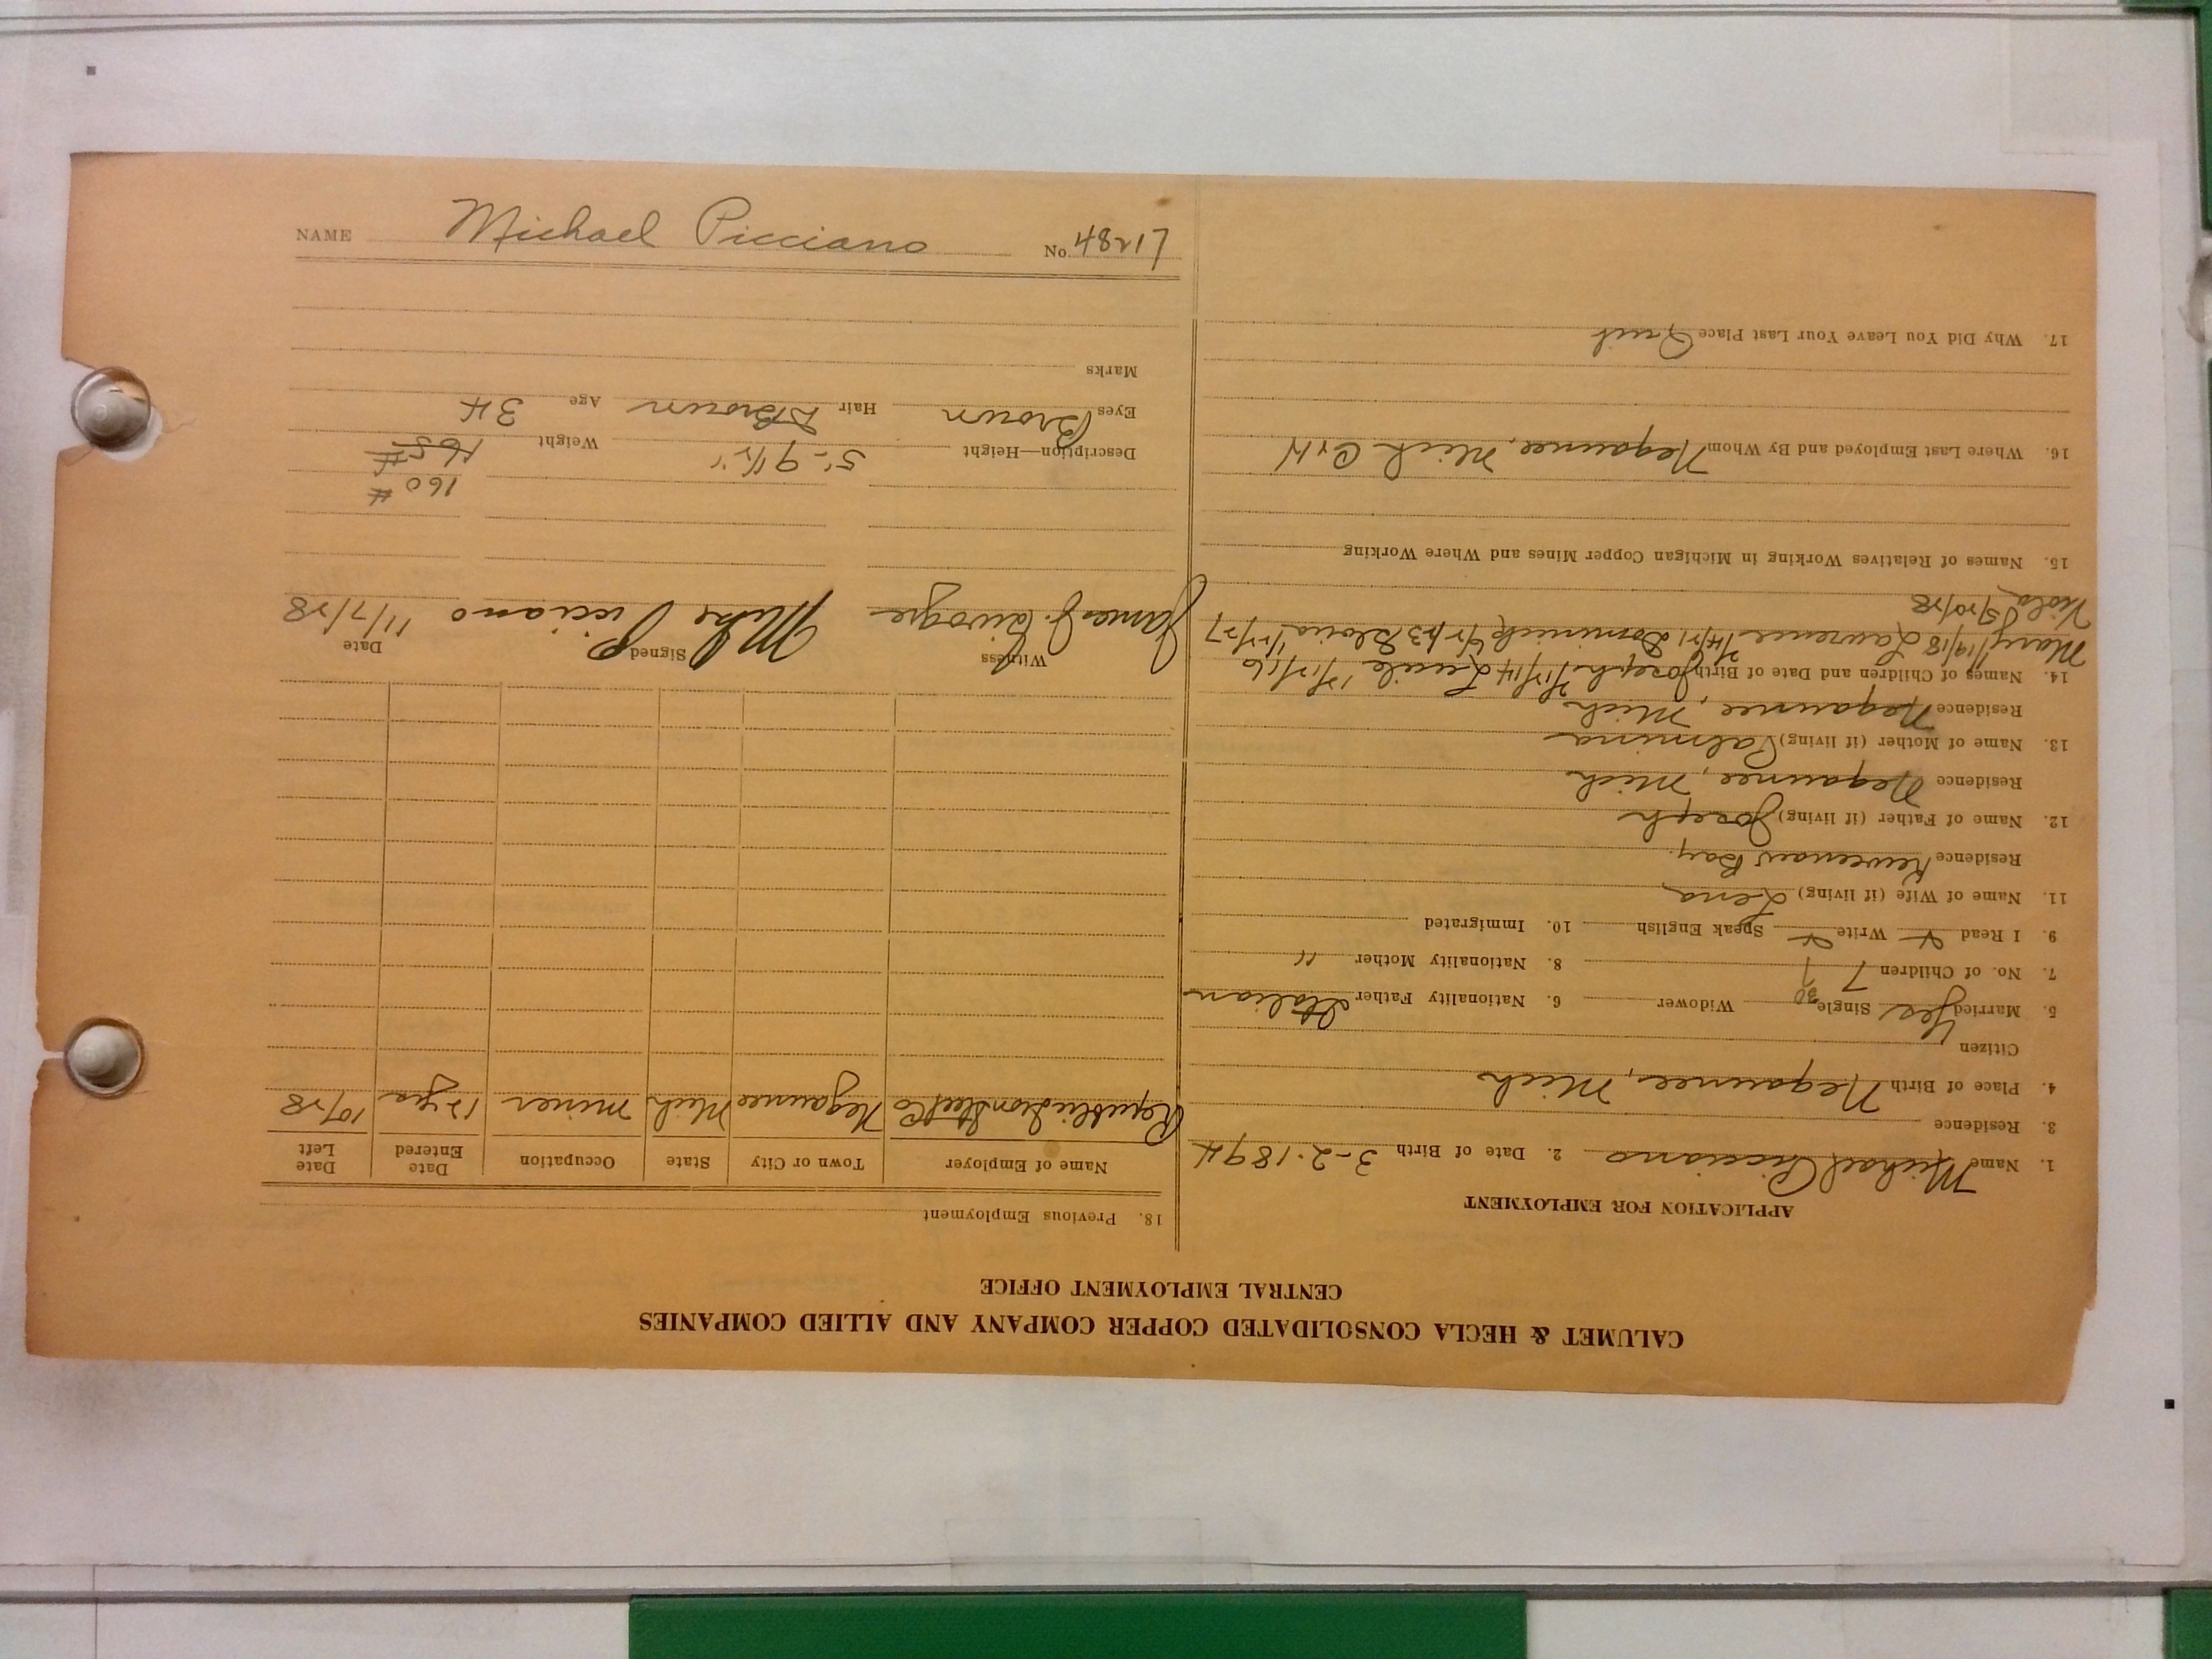 NAME Michael Picciano No. 48217
CALUMET & HECLA CONSOLIDATED COPPER COMPANY AND ALLIED COMPANIES
CENTRAL EMPLOYMENT OFFICE
APPLICATION FOR EMPLOYMENT
1. Name Michael Picciano 2. Date of Birth 3-2-1894
3. Residence
4. Place of Birth Negaunee, Mich
Citizen
5. Married Yes Single Widower 6. Nationality Father Italian
7. No. of Children 7 8. Nationality Mother "
9. I Read Write Speak English 10. Immigrated
11. Name of Wife (if living) Lena
Residence Keweenaw Bay.
12. Name of Father (if living) Joseph
Residence Negaunee, Mich
13. Name of Mother (if living) Palmina
Residence Negaunee, Mich
14. Names of Children and Date of Birth Joseph Lucile 12/12/16
Mary Lawrence Dominick
Viola 5/10/28
15. Names of Relatives Working in Michigan Copper Mines and Where Working
16. Where Last Employed and By Whom Negaunee, Mich
17. Why Did You Leave Your Last Place Quit
18. Previous Employment
Name of Employer Town or City State Occupation Date Entered Date Left
Republic Iron Steel Co Negaunee Mich miner 12 yrs 10/28
Witness Signed Date
James J. Mike Picciano 11/7/28
160 #
Description—Height 5'-9 1/2" Weight 165 #
Eyes Brown Hair D Brown Age 34
Marks